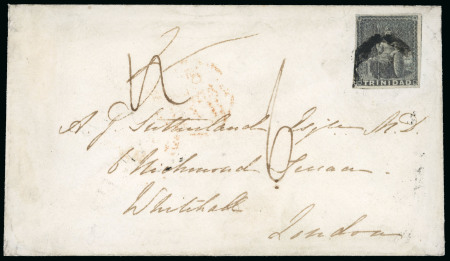 TRINIDAD
A. J. Sutherland Esqre M.D.
6 Richmond Terrace
Whitehall
London